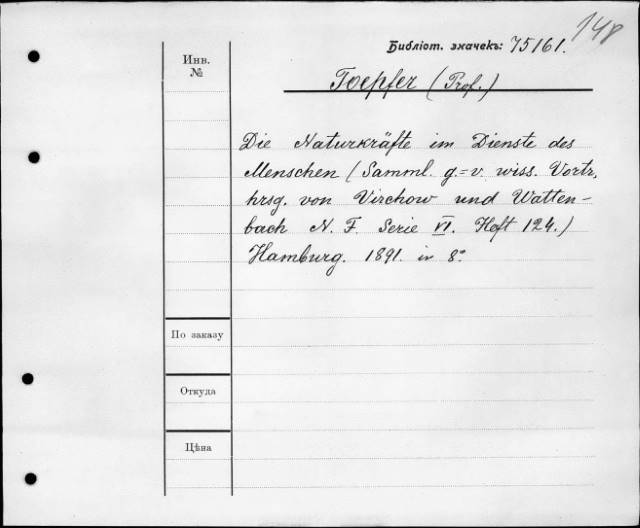 148
Библіот. значекъ: 75161.
Инв.
№
Toepfer (Prof.)
Die Naturkräfte im Dienste des
Menschen (Samml. g.=v. wiss. Vortr.
hrsg. von Virchow und Watten-
bach N. F. Serie VI. Heft 124.)
Hamburg. 1891. in 8°
По заказу
Откуда
Цѣна